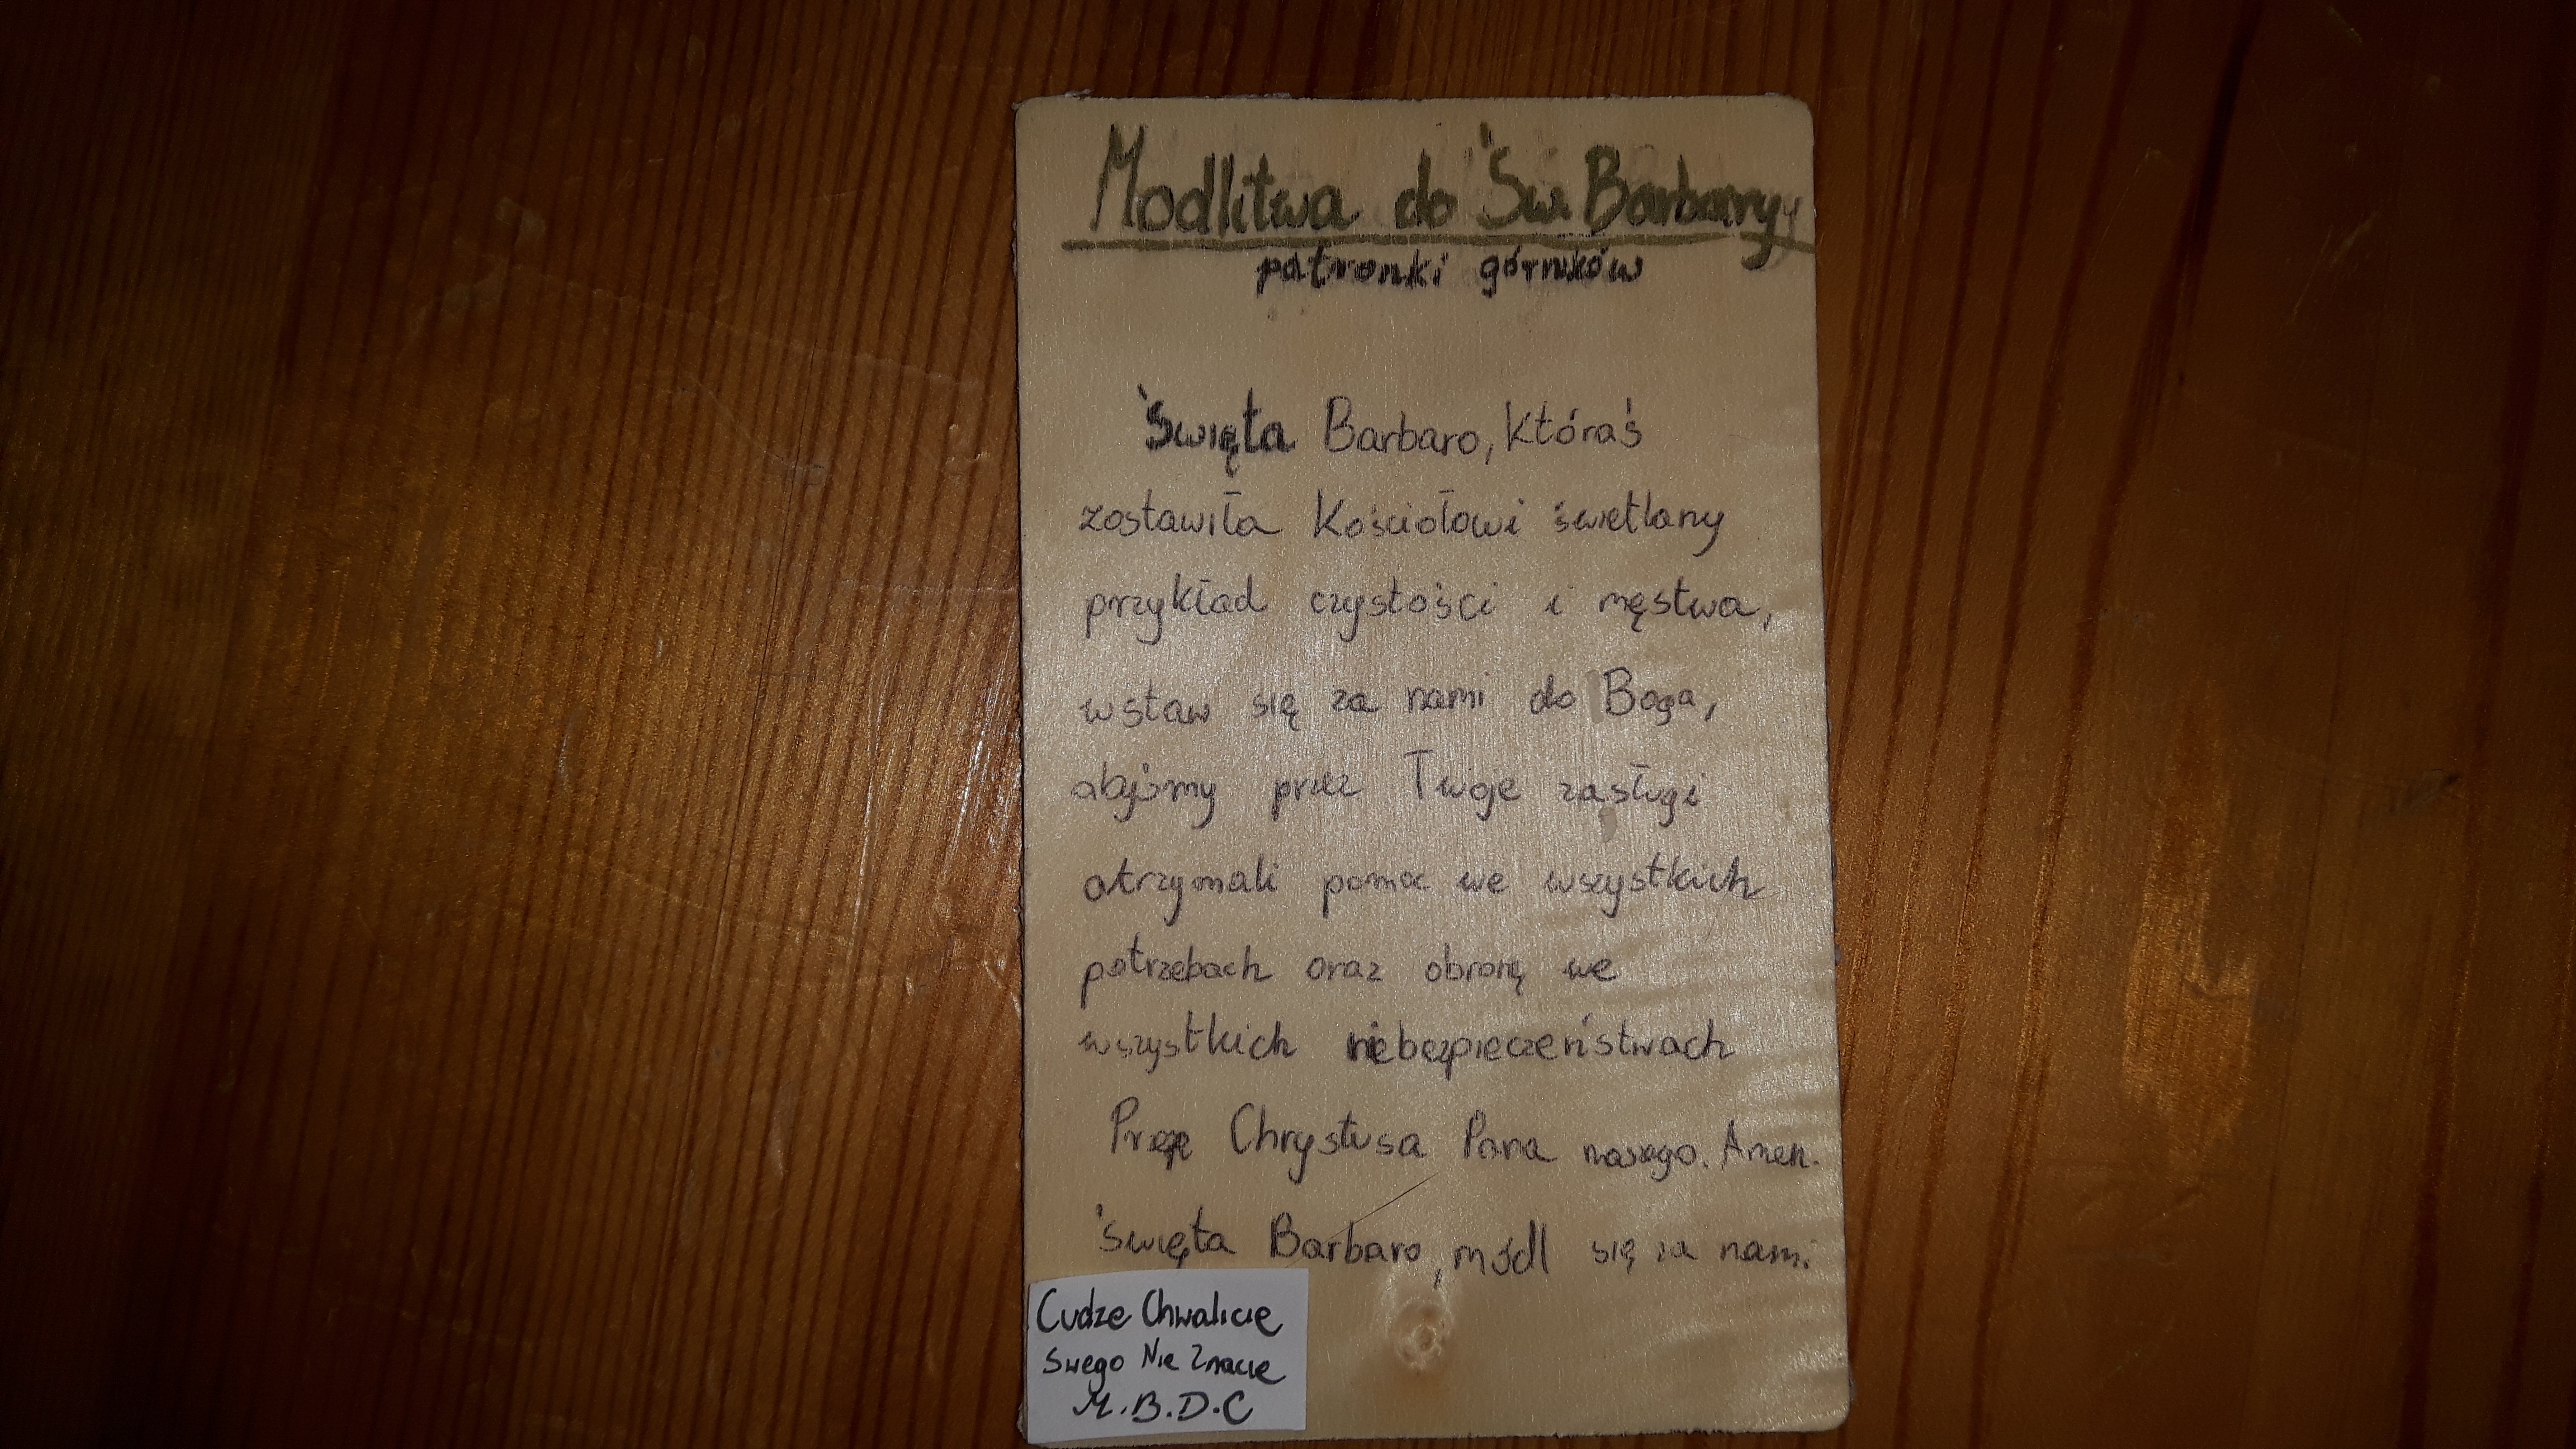 Modlitwa do Św. Barbary
patronki górników
Święta Barbaro, któraś
zostawiła Kościołowi świetlany
przykład czystości i męstwa,
wstaw się za nami do Boga,
abyśmy przez Twoje zasługi
otrzymali pomoc we wszystkich
potrzebach oraz obronę we
wszystkich niebezpieczeństwach
Chrystusa Pana naszego. Amen.
Święta Barbaro, módl się za nami
Cudze Chwalicie
Swego Nie Znacie
M.B.D.C